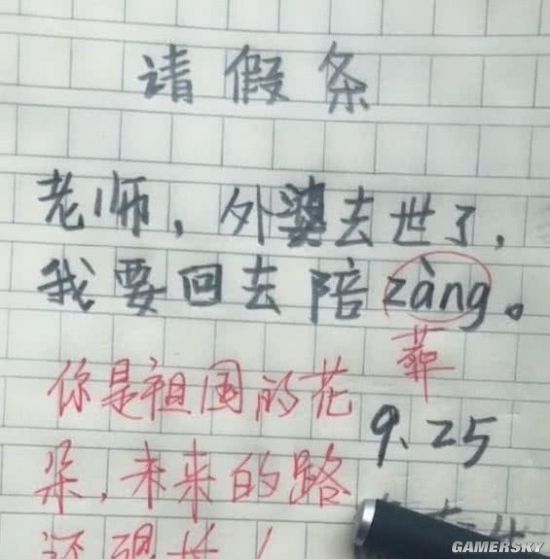 请假条
老师，外婆去世了，
我要回去陪zàng。
葬
你是祖国的花
朵，未来的路
9.25
还很长！
GAMERSKY